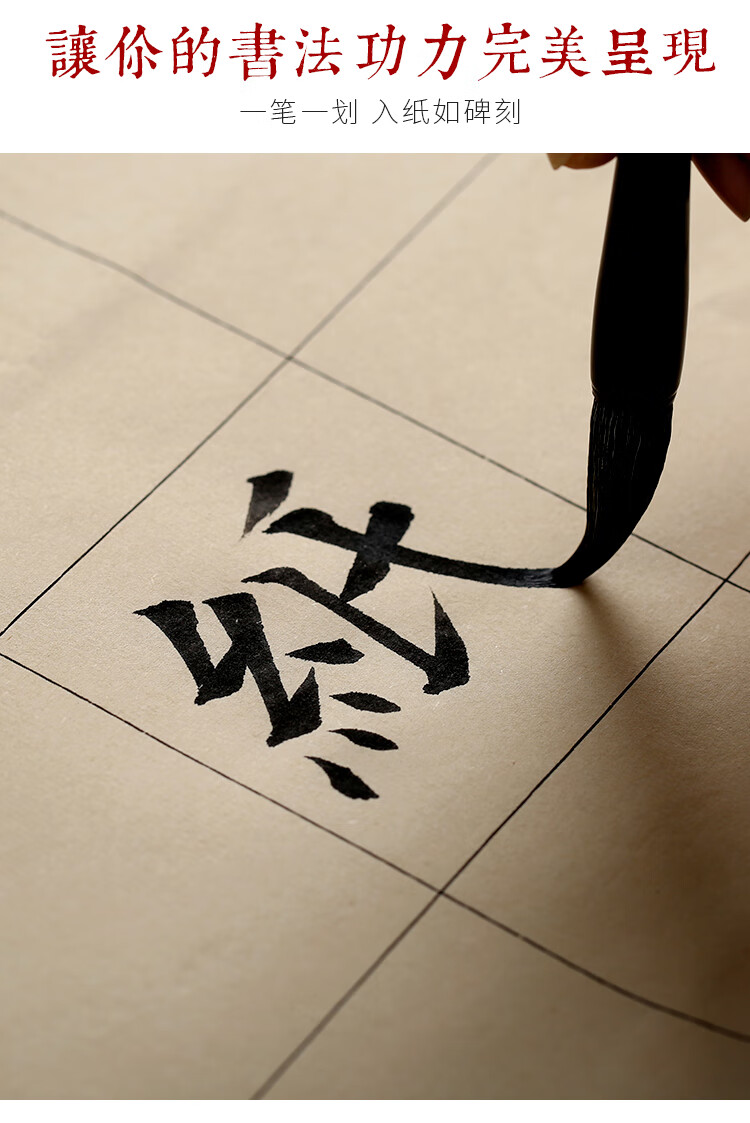 讓你的書法功力完美呈現
一笔一划 入纸如碑刻
紙